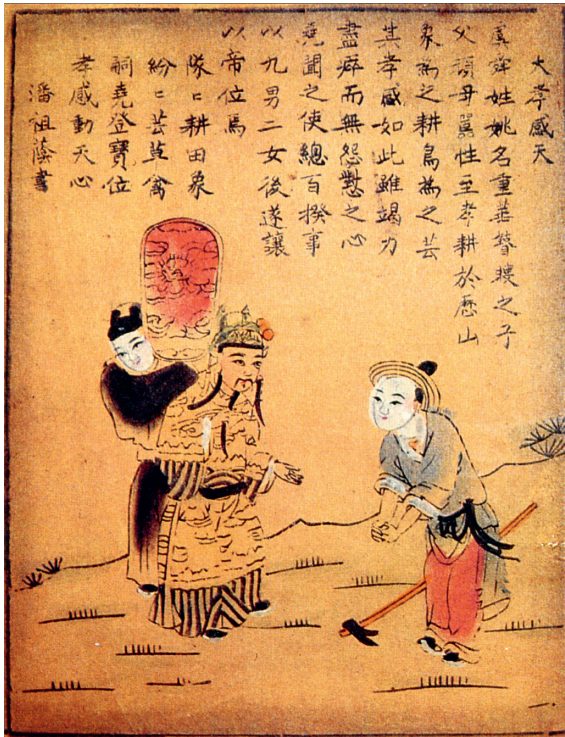 大孝感天
虞舜姓姚名重華瞽瞍之子
父頑母嚚性至孝耕於歷山
象為之耕鳥為之芸
其孝感如此雖竭力
盡瘁而無怨懟之心
堯聞之使總百揆事
以九男二女後遂讓
以帝位焉
隊〻耕田象
紛〻芸草禽
嗣堯登寶位
孝感動天心
潘祖蔭書
一